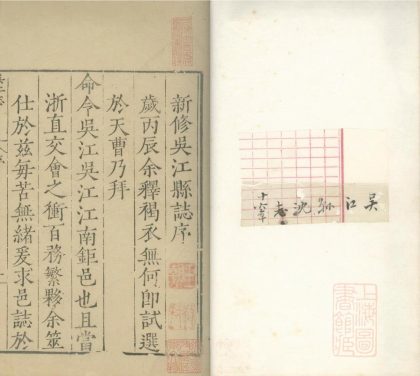 吴江
沈志
新修吳江縣誌序
歲丙辰余釋褐衣無何卽試選
於天曹乃拜
命令吳江吳江江南鉅邑也且當
浙直交會之衝百務繁夥余筮
仕於茲每苦無緒爰求邑誌於
上海圖書館藏